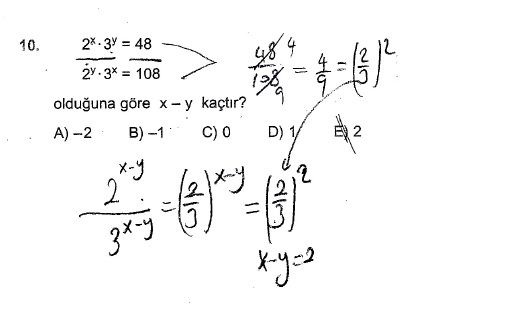 10. 2ˣ · 3ʸ = 48
2ʸ · 3ˣ = 108
48/108 4/9 = 4/9 = (2/3)²
olduğuna göre x – y kaçtır?
A) –2 B) –1 C) 0 D) 1 E) 2
2^(x-y) / 3^(x-y) = (2/3)^(x-y) = (2/3)²
x-y=2